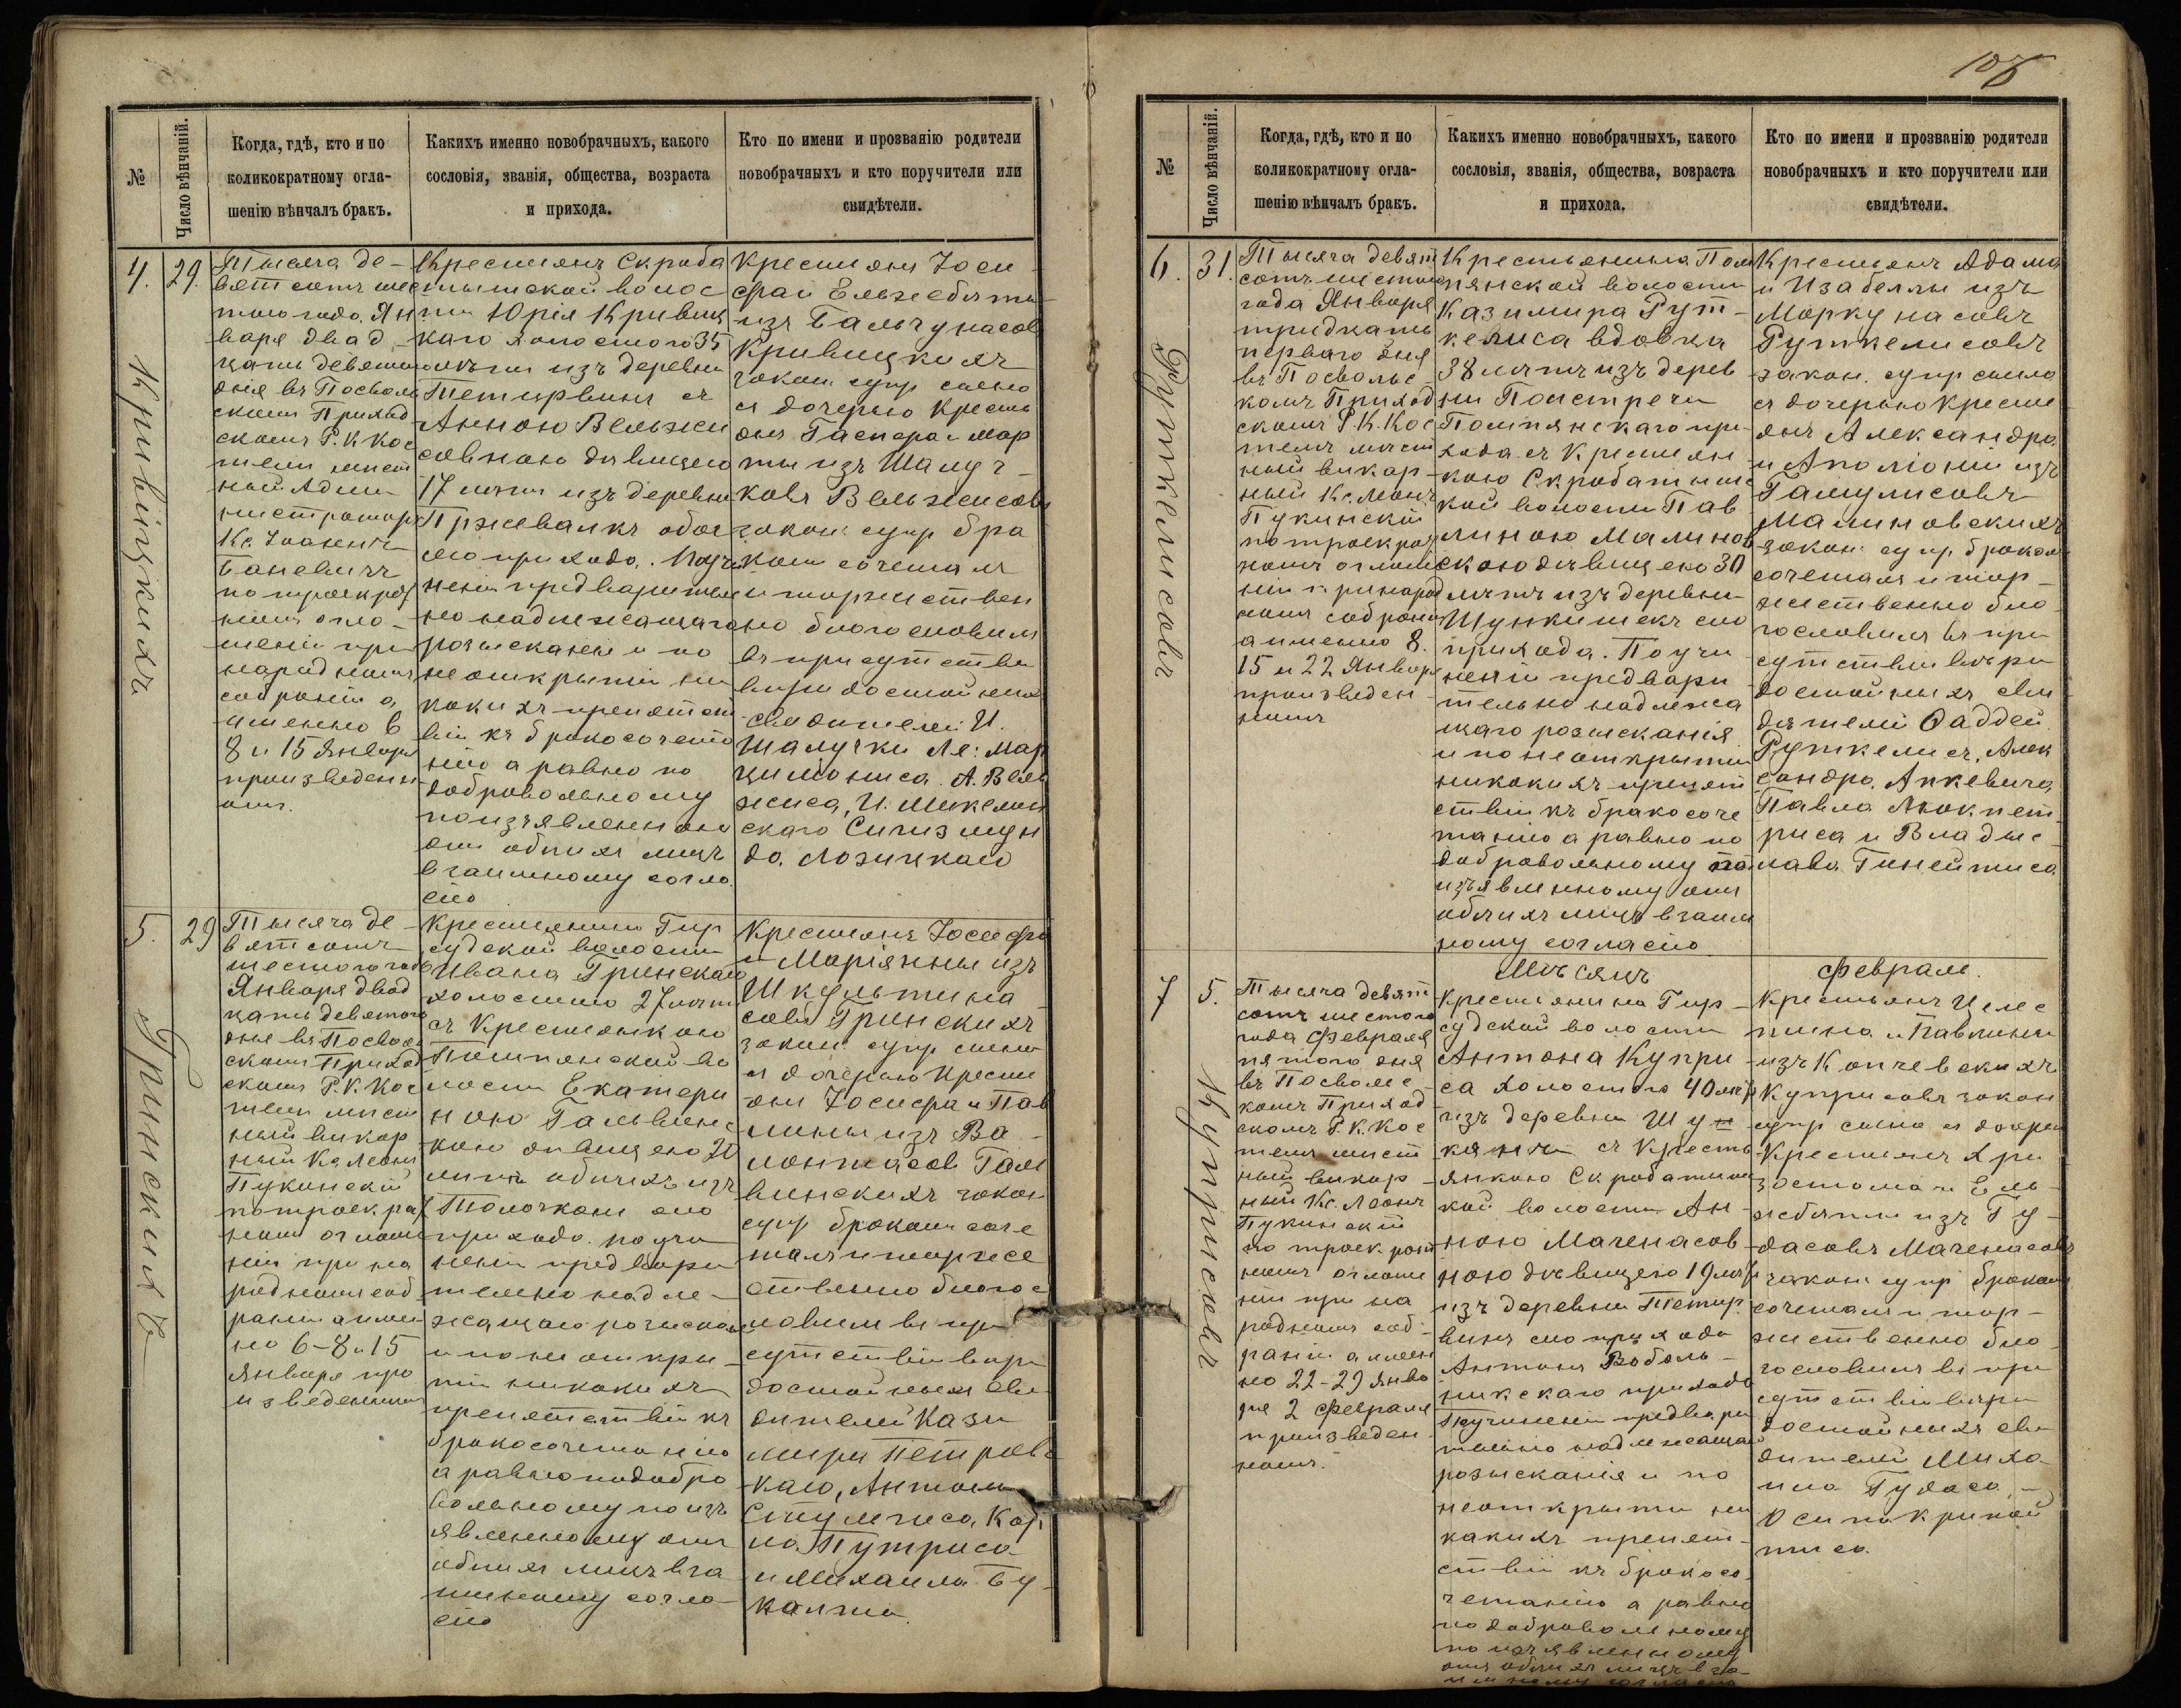 106
№
Число вѣнчаній.
Когда, гдѣ, кто и по
коликократному огла-
шенію вѣнчалъ бракъ.
Какихъ именно новобрачныхъ, какого
сословія, званія, общества, возраста
и прихода.
Кто по имени и прозванію родители
новобрачныхъ и кто поручители или
свидѣтели.
4.
29.
Кривицкихъ
Тысяча де-
вятсотъ шес
того года Ян
варя двад
цать девятаго
дня въ Посволь
скомъ Приход
скомъ Р. К. Кос
телѣ мѣст
ный Адми
нистраторъ
Кс. Іоаннъ
Баневичъ
по троекрат
номъ огла-
шеніи при
народномъ
собраніи а
именно 6
8 и 15 Января
произведенн
омъ.
Крестьянъ Скроба
тышской волос
ти Юрія Кривиц
каго холостого 35
лѣтъ изъ деревни
Тетирвины съ
Анною Вельжи
совною дѣвицею
17 лѣтъ изъ деревни
Пржевалкъ обое
его прихода. По учи
неніи предваритель
но надлежащаго
розысканія и по
неоткрытіи ни
какихъ препятст
вій къ бракосочета
нію а равно по
добровольному
по изъявленному
ими обоихъ лицъ
взаимному согла
сію
Крестьянъ Іоси
фа и Ельжбѣты
изъ Бальчунасовъ
Кривицкихъ
закон. супр. сына
съ дочерью Кресть
янъ Гаспера и Мар
ты изъ Шалуч-
ковъ Вельжисовъ
закон. супр. бра
комъ сочеталъ
и торжествен
но благословилъ
въ присутствіи
вѣридостойныхъ
свидѣтелей И.
Шалучки Ле: Мар
цинониса А. Вель
жиса, И. Микелин
скаго Сигизмун
да Лозицкаго
5.
29
Гринскихъ
Тысяча де
вятсотъ
шестого года
Января двад
цать девятаго
дня въ Посволь
скомъ Приход
скомъ Р. К. Кос
телѣ мѣст
ный викар
ный Кс Леонъ
Пукинскій
по троекрат
номъ оглаше
ніи при на
родномъ соб
раніи а имен
но 6-8 и 15
Января про
изведенномъ
Крестьянина Гир
судской волости
Ивана Гринскаго
холостого 27 лѣтъ
съ Крестьянкою
Помпянской во
лости Екатери
ною Гальвинс
кою дѣвицею 20
лѣтъ обоихъ изъ
Толочкани сего
прихода. по учи
неніи предвари
тельно надле-
жащаго розыскан
и по не откры
тіи никакихъ
препятствій къ
бракосочетанію
а равно по добро
вольному по изъ
явленному ими
обоихъ лицъ вза
имному согла-
сію
Крестьянъ Іосифа
и Маріянны изъ
Шкультина
совъ Гринскихъ
закон. супр. сына
съ дочерью Кресть
янъ Іосифа и Пав
лины изъ Ва-
лонтасовъ Галь
винскихъ закон
супр. бракомъ соче
талъ и торже
ственно благос
ловилъ въ при
сутствіи вѣри
достойныхъ сви
дѣтелей Кази
мира Петровс
каго, Антона
Стульгиса, Кар
ла Путриса
и Михаила Бу
калти.
№
Число вѣнчаній.
Когда, гдѣ, кто и по
коликократному огла-
шенію вѣнчалъ бракъ.
Какихъ именно новобрачныхъ, какого
сословія, званія, общества, возраста
и прихода.
Кто по имени и прозванію родители
новобрачныхъ и кто поручители или
свидѣтели.
6.
31.
Руткелисовъ
Тысяча девят
сотъ шестого
года Января
тридцать
перваго дня
въ Посвольс
комъ Приход
скомъ Р. К. Кос
телѣ мѣст
ный викар
ный Кс. Леонъ
Пукинскій
по троекрат
номъ оглаше
ніи при народ
номъ собраніи
а именно 8.
15 и 22 Января
произведен
номъ
Крестьянина Пом
пянской волости
Казимира Рут-
келиса вдовца
38 лѣтъ изъ дерев
ни Поистречи
Помпянскаго при
хода съ Крестьян
кою Скробатишс
кой волости Пав
линою Малинов
скою дѣвицею 30
лѣтъ изъ деревни
Шункишекъ сего
прихода. По учи
неніи предвари
тельно надлежа
щаго розысканія
и по неоткрытіи
никакихъ препят
ствій къ бракосоче
танію а равно по
добровольному по
изъявленному ими
обоихъ лицъ взаим
ному согласію
Крестьянъ Адама
и Изабеллы изъ
Моркунасовъ
Руткелисовъ
закон. супр. сына
съ дочерью Кресть
янъ Александра
и Аполіоніи изъ
Гамулисовъ
Малиновскихъ
закон. супр. бракомъ
сочеталъ и тор-
жественно бла
гословилъ въ при
сутствіи вѣри
достойныхъ сви
дѣтелей Фаддей
Руткелисъ, Алек
сандра Анкевича
Павла Люкпет
риса и Владис
лава Гинейтиса
Мѣсяцъ
Февраль.
7
5.
Куприсовъ
Тысяча девят
сотъ шестого
года Февраля
пятаго дня
въ Посвольс
комъ Приход
скомъ Р. К. Кос
телѣ мѣст
ный викар
ный Кс. Леонъ
Пукинскій
по троекрат
номъ оглаше
ніи при на
родномъ соб
раніи а имен
но 22-29 Янва
ря 2 Февраля
произведен
номъ.
Крестьянина Гир
судской волости
Антона Купри
са холостого 40 лѣтъ
изъ деревни Шун
кянчи съ Кресть
янкою Скробатишс
кой волости Ан-
ною Маченасов
ною дѣвицею 19 лѣтъ
изъ деревни Тетир
вины сего прихода
Антонъ Воболь-
никскаго прихода
По учиненіи предвари
тельно надлежащаго
розысканія и по
неоткрытіи ни
какихъ препят-
ствій къ бракосо
четанію а равно
по добровольному
по изъявленному
ими обоихъ лицъ вза
имному согласію
Крестьянъ Целес
тина и Павлины
изъ Копчевскихъ
Куприсовъ закон
супр. сына съ дочерью
Крестьянъ Хри
зостома и Ель
жбѣты изъ Гу-
дасовъ Маченасовъ
закон. супр. бракомъ
сочеталъ и тор-
жественно бла
гословилъ въ при
сутствіи вѣри
достойныхъ сви
дѣтелей Миха
ила Гудаса,-
Осипа Крикой
тиса.